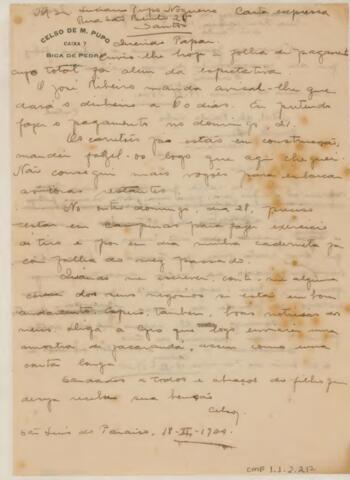 Luciano Pupo Nogueira Carta expressa
Rua São Bento 28
Santos
CELSO DE M. PUPO
CAIXA 7
BICA DE PEDRA
Querido Papai
Envio-lhe hoje a folha de pagamento
cujo total foi além da espectativa.
O José Ribeiro manda avisal-lhe que
dará o dinheiro a 60 dias. Eu pretendo
fazer o pagamento no domingo, 21.
Os carretéis já estão em construcção,
mandei fazel-os logo que aqui cheguei.
Não consegui mais vagões para embarcar
as toras restantes.
No outro domingo, dia 28, preciso
estar em Campinas para fazer exercicio
de tiro e por em dia minha caderneta já
com falha do mez passado.
Quando me escrever, conte-me alguma
cousa dos seus negocios se estão em bom
andamento. Espero, tambem, boas noticias
meus. Diga a que logo enviarei uma
amostra de jacarandá, assim como uma
carta longa.
Saudades a todos e abraços do filho que
deseja receber sua benção
Celso
São Luis do Paraiso, 18-
CMP 1.1.2.212